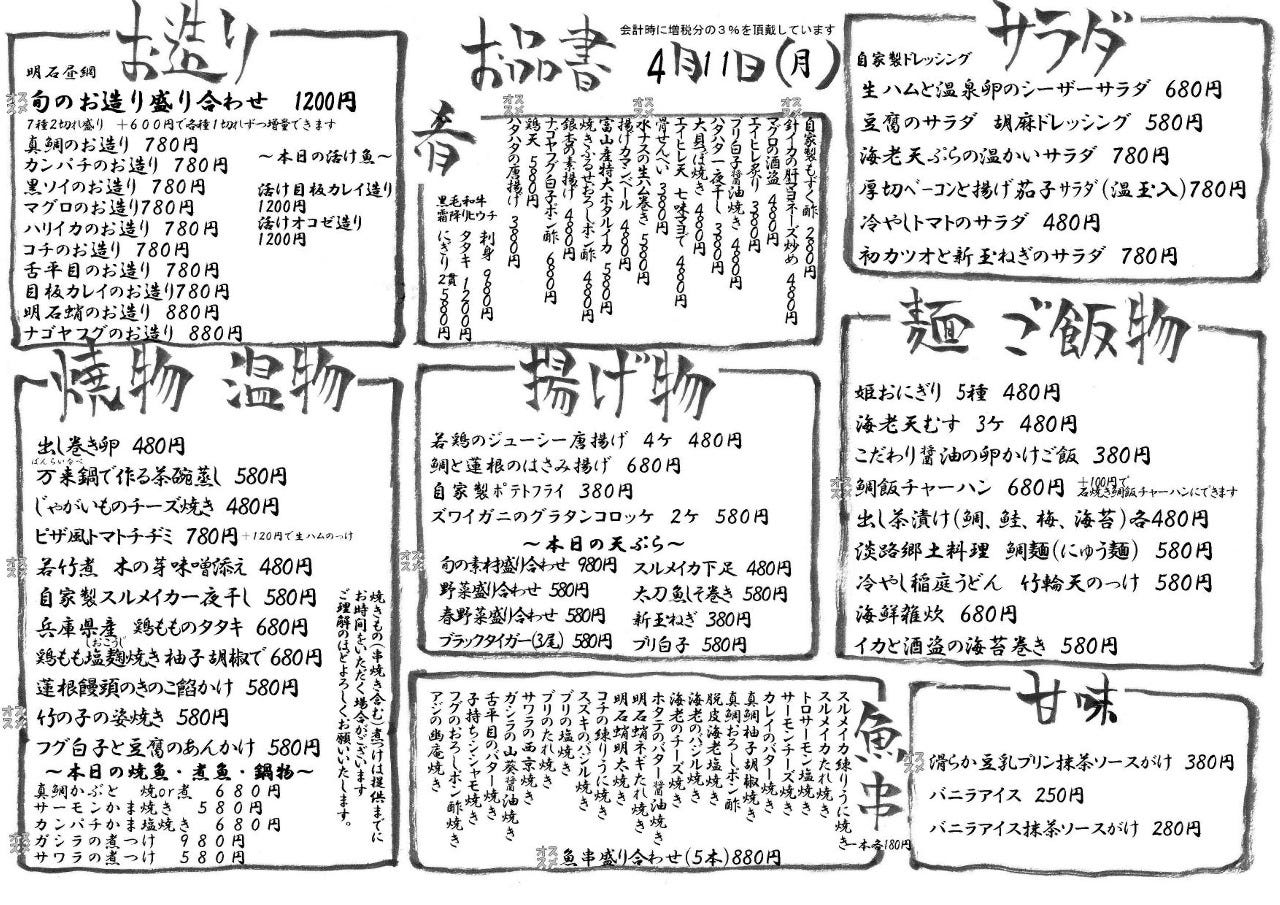 お品書
会計時に増税分の3%を頂戴しています
4月11日(月)
お造り
明石昼網
オススメ
旬のお造り盛り合わせ 1200円
7種2切れ盛り +600円で各種1切れずつ増量できます
真鯛のお造り 780円
カンパチのお造り 780円
黒ソイのお造り 780円
マグロのお造り780円
ハリイカのお造り 780円
コチのお造り 780円
舌平目のお造り 780円
目板カレイのお造り780円
明石蛸のお造り 880円
ナゴヤフグのお造り 880円
~本日の活け魚~
活け目板カレイ造り
1200円
活けオコゼ造り
1200円
肴
オススメ
オススメ
オススメ
自家製もずく酢 280円
針イカの肝マヨネーズ炒め 480円
マグロの酒盗 480円
エイヒレ炙り 380円
ブリ白子醤油焼き 480円
ハタハタ一夜干し 380円
大貝つぼ焼き 480円
エイヒレ天 七味マヨで 480円
骨せんべい 380円
水ナスの生ハム巻き 580円
揚げカマンベール 480円
富山産特大ホタルイカ 580円
焼きふぐせおろしポン酢 480円
銀あの素揚げ 480円
ナゴヤフグ白子ポン酢 680円
鶏天 580円
ハタハタの唐揚げ 380円
黒毛和牛
霜降りヒウチ
刺身 980円
タタキ 1200円
にぎり2貫 580円
サラダ
自家製ドレッシング
生ハムと温泉卵のシーザーサラダ 680円
豆腐のサラダ 胡麻ドレッシング 580円
海老天ぷらの温かいサラダ 780円
厚切ベーコンと揚げ茄子サラダ(温玉入)780円
冷やしトマトのサラダ 480円
初カツオと新玉ねぎのサラダ 780円
焼物 温物
出し巻き卵 480円
ばんらいなべ
万来鍋で作る茶碗蒸し 580円
じゃがいものチーズ焼き 480円
ピザ風トマトチヂミ 780円+120円で生ハムのっけ
オススメ
若竹煮 木の芽味噌添え 480円
自家製スルメイカ一夜干し 580円
兵庫県産 鶏もものタタキ 680円
しおこうじ
鶏もも塩麹焼き柚子胡椒で680円
蓮根饅頭のきのこ餡かけ 580円
オススメ
竹の子の姿焼き 580円
フグ白子と豆腐のあんかけ 580円
~本日の焼魚・煮魚・鍋物~
真鯛かぶと 焼or煮 680円
サーモンかま焼き 580円
カンパチかま塩焼き 680円
オススメ
ガシラの煮つけ 980円
サワラの煮つけ 580円
焼きもの(串焼き含む)煮つけは提供までに
お時間をいただく場合がございます
ご理解のほどよろしくお願いいたします。
揚げ物
若鶏のジューシー唐揚げ 4ケ 480円
鯛と蓮根のはさみ揚げ 680円
自家製ポテトフライ 380円
ズワイガニのグラタンコロッケ 2ケ 580円
~本日の天ぷら~
オススメ
旬の素材盛り合わせ 980円
野菜盛り合わせ 580円
春野菜盛り合わせ 580円
ブラックタイガー(3尾) 580円
スルメイカ下足 480円
太刀魚しそ巻き 580円
新玉ねぎ 380円
ブリ白子 580円
麺 ご飯物
姫おにぎり 5種 480円
海老天むす 3ケ 480円
こだわり醤油の卵かけご飯 380円
オススメ
鯛飯チャーハン 680円
+100円で
石焼き鯛飯チャーハンにできます
出し茶漬け(鯛、鮭、梅、海苔)各480円
淡路郷土料理 鯛麺(にゅう麺) 580円
冷やし稲庭うどん 竹輪天のっけ 580円
海鮮雑炊 680円
イカと酒盗の海苔巻き 580円
魚串
スルメイカ練りうに焼き
スルメイカたれ焼き
トロサーモン塩焼き
サーモンチーズ焼き
カレイのバター焼き
真鯛柚子胡椒焼き
真鯛おろしポン酢
脱皮海老塩焼き
海老のバジル焼き
海老のチーズ焼き
ホタテのバター醤油焼き
明石蛸ネギたれ焼き
明石蛸明太焼き
コチの練りうに焼き
ススキのバジル焼き
ブリの塩焼き
ブリのたれ焼き
サワラの西京焼き
ガシラの山葵醤油焼き
舌平目のバター焼き
子持ちシシャモ焼き
フグのおろしポン酢焼き
アジの幽庵焼き
一本各180円
オススメ
魚串盛り合わせ(5本)880円
甘味
オススメ
滑らか豆乳プリン抹茶ソースがけ 380円
バニラアイス 250円
バニラアイス抹茶ソースがけ 280円